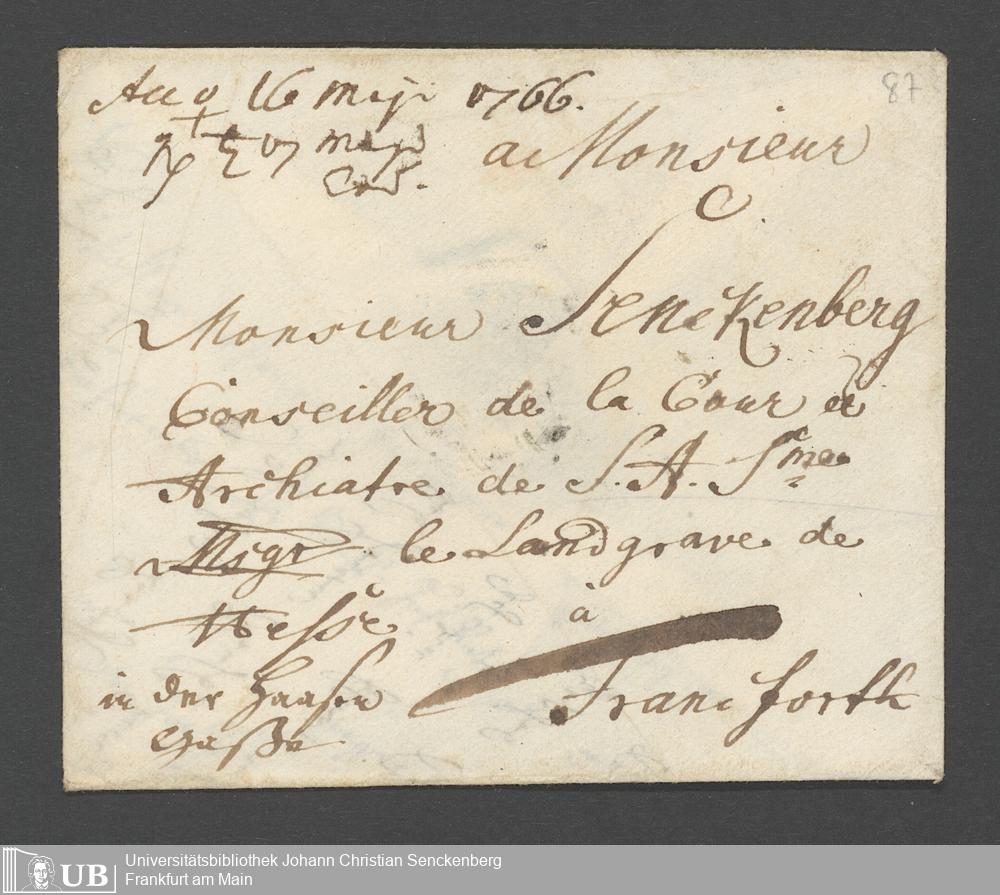 16 Maji 1766.
87
a Monsieur
Monsieur Senckenberg
Conseiller de la Cour et
Archiatre de S. A. Sme
Msgr le Landgrave de
Hesse
à
in der Haasen
Gasse
Francforth
UB
Universitätsbibliothek Johann Christian Senckenberg
Frankfurt am Main